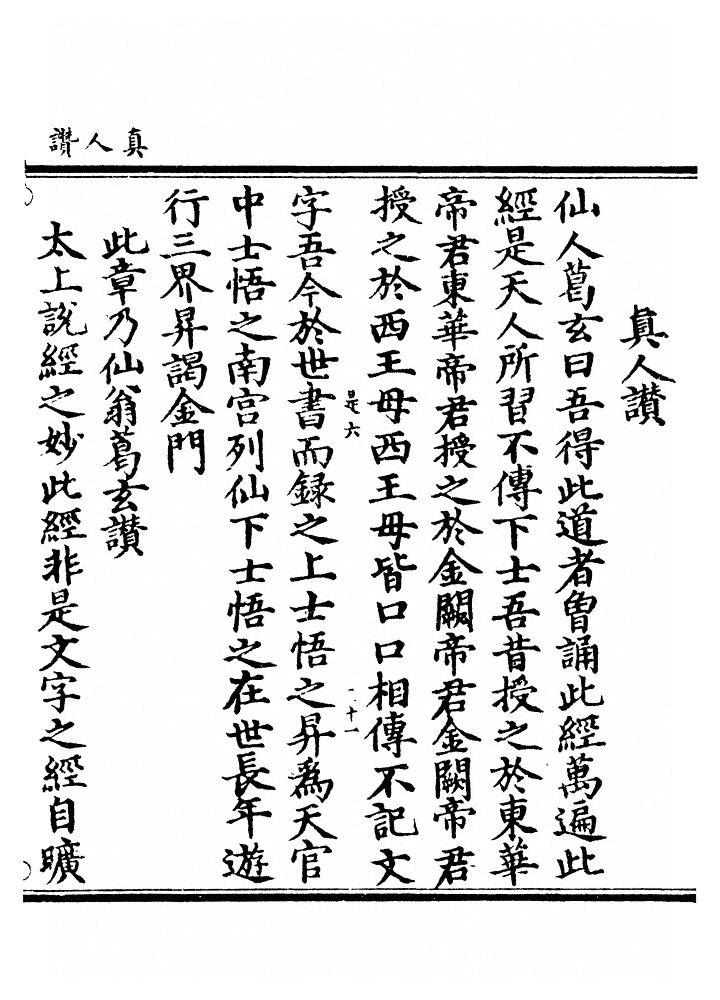 真人讚
真人讚
仙人葛玄曰吾得此道者曾誦此經萬遍此
經是天人所習不傳下士吾昔授之於東華
帝君東華帝君授之於金闕帝君金闕帝君
授之於西王母西王母皆口口相傳不記文
是六
二十一
字吾今於世書而録之上士悟之昇爲天官
中士悟之南宫列仙下士悟之在世長年遊
行三界昇謁金門
此章乃仙翁葛玄讚
太上說經之妙此經非是文字之經自曠